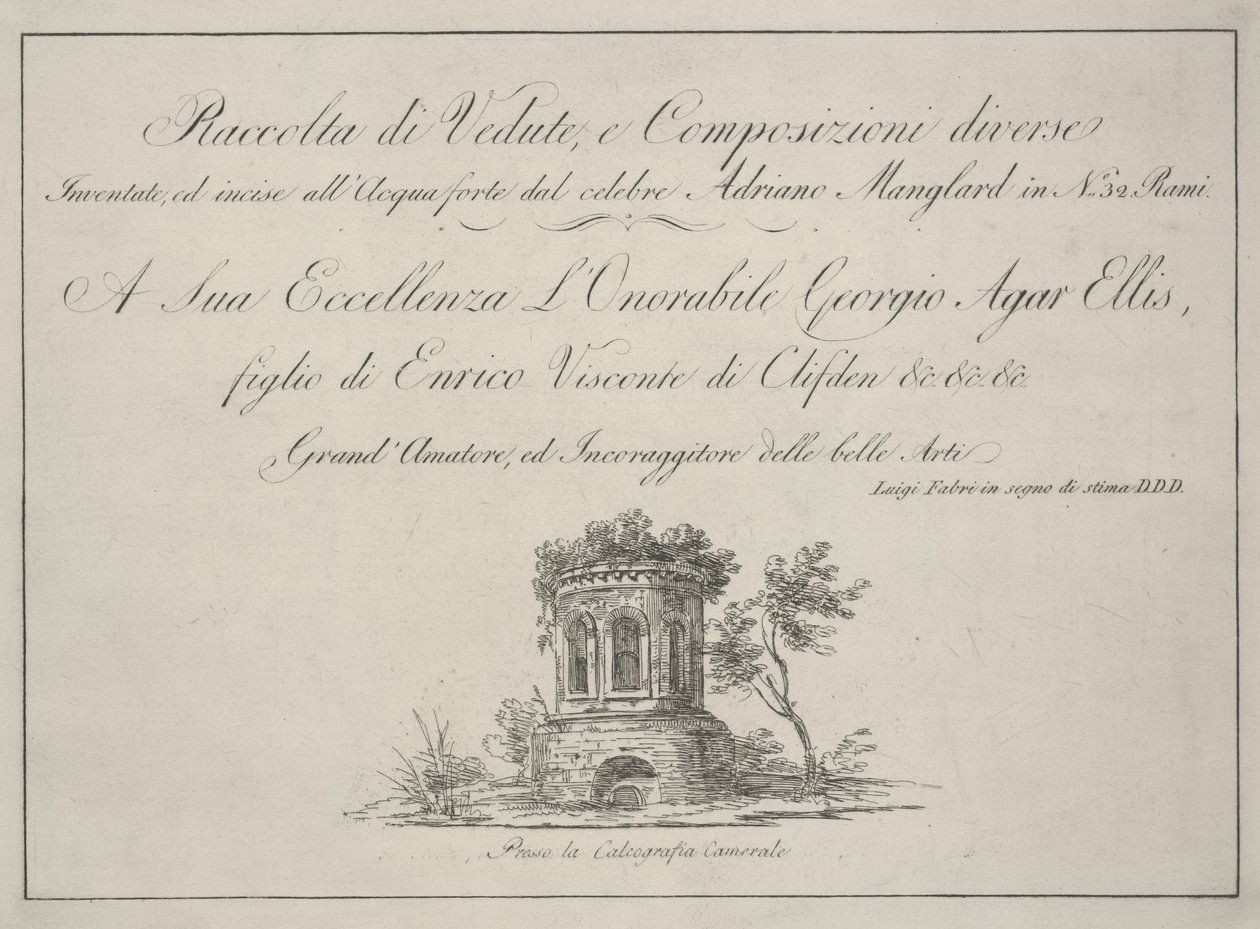 Raccolta di Vedute, e Composizioni diverse
Inventate, ed incise all'Acqua forte dal celebre Adriano Manglard in N.º 32. Rami.
A Sua Eccellenza L'Onorabile Georgio Agar Ellis,
figlio di Enrico Visconte di Clifden &c. &c. &c.
Grand' Amatore, ed Incoraggitore delle belle Arti
Luigi Fabri in segno di stima D.D.D.
Presso la Calcografia Camerale